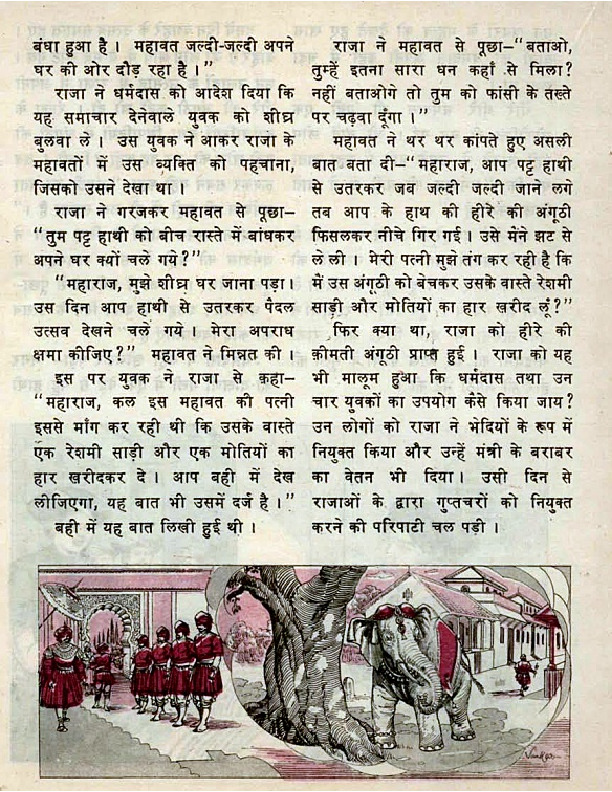 बंधा हुआ है । महावत जल्दी-जल्दी अपने
घर की ओर दौड़ रहा है ।”
राजा ने धर्मदास को आदेश दिया कि
यह समाचार देनेवाले युवक को शीघ्र
बुलवा ले । उस युवक ने आकर राजा के
महावतों में उस व्यक्ति को पहचाना,
जिसको उसने देखा था ।
राजा ने गरजकर महावत से पूछा–
“तुम पट्ट हाथी को बीच रास्ते में बांधकर
अपने घर क्यों चले गये?”
“महाराज, मुझे शीघ्र घर जाना पड़ा ।
उस दिन आप हाथी से उतरकर पैदल
उत्सव देखने चले गये । मेरा अपराध
क्षमा कीजिए?” महावत ने मिन्नत की ।
इस पर युवक ने राजा से कहा–
“महाराज, कल इस महावत की पत्नी
इससे मांग कर रही थी कि उसके वास्ते
एक रेशमी साड़ी और एक मोतियों का
हार खरीदकर दे । आप बही में देख
लीजिएगा, यह बात भी उसमें दर्ज है ।”
बही में यह बात लिखी हुई थी ।
राजा ने महावत से पूछा–“बताओ,
तुम्हें इतना सारा धन कहाँ से मिला?
नहीं बताओगे तो तुम को फांसी के तख्ते
पर चढ़वा दूंगा ।”
महावत ने थर थर कांपते हुए असली
बात बता दी–“महाराज, आप पट्ट हाथी
से उतरकर जब जल्दी जल्दी जाने लगे
तब आप के हाथ की हीरे की अंगूठी
फिसलकर नीचे गिर गई । उसे मैंने झट से
ले ली । मेरी पत्नी मुझे तंग कर रही है कि
मैं उस अंगूठी को बेचकर उसके वास्ते रेशमी
साड़ी और मोतियों का हार खरीद लूं?”
फिर क्या था, राजा को हीरे की
क़ीमती अंगूठी प्राप्त हुई । राजा को यह
भी मालूम हुआ कि धर्मदास तथा उन
चार युवकों का उपयोग कैसे किया जाय?
उन लोगों को राजा ने भेदियों के रूप में
नियुक्त किया और उन्हें मंत्री के बराबर
का वेतन भी दिया । उसी दिन से
राजाओं के द्वारा गुप्तचरों को नियुक्त
करने की परिपाटी चल पड़ी ।